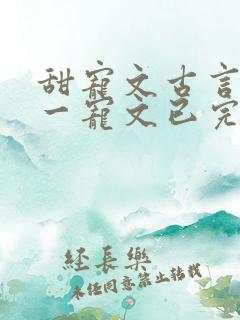 甜寵文古言
一寵文已完
經長樂
未经同意禁止转载